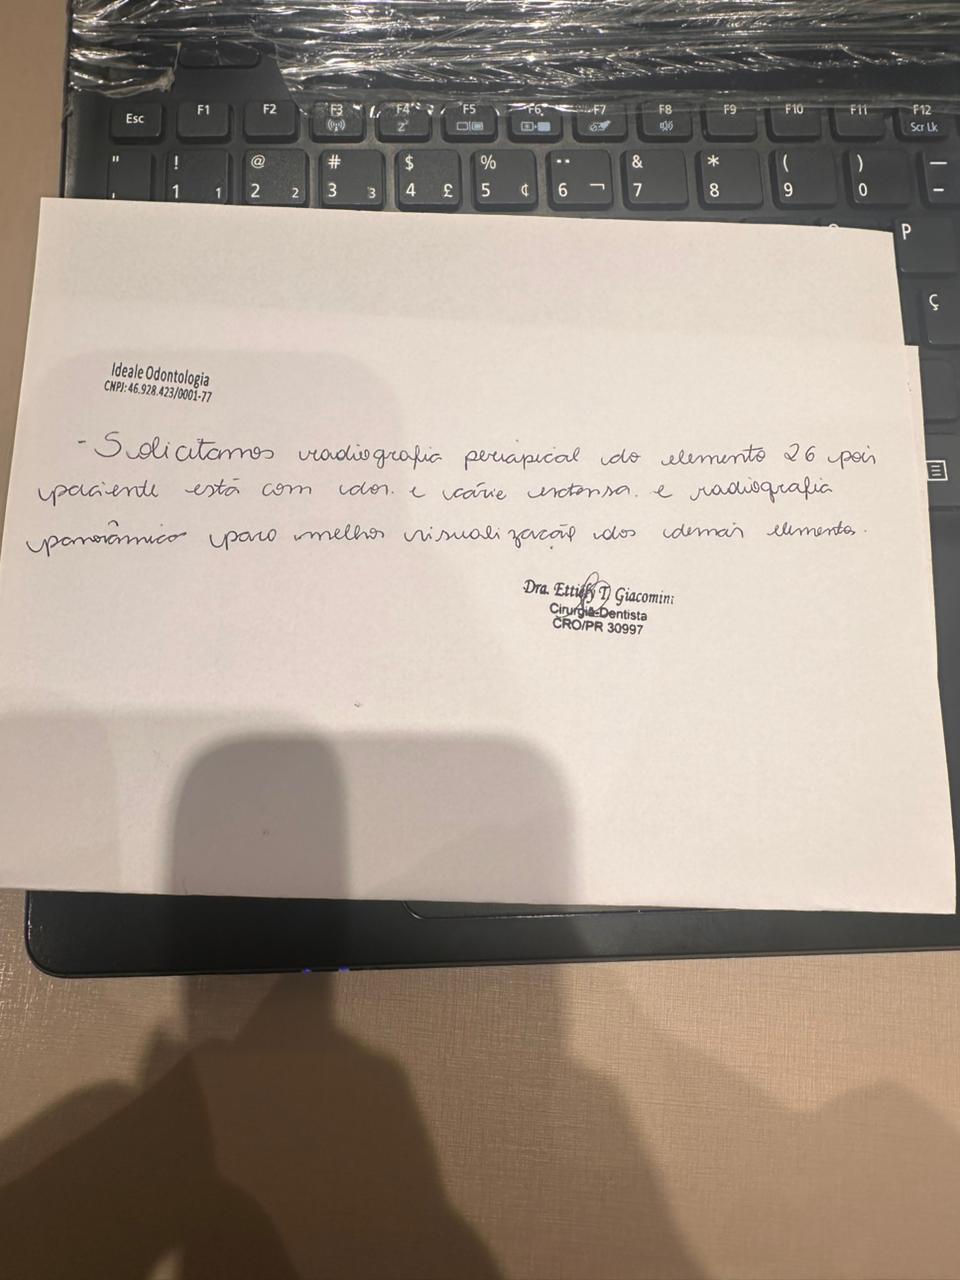 Esc F1 F2 F3 F4 F5 F6 F7 F8 F9 F10 F11 F12
Scr Lk
" ! @ # $ % ¨ & * ( ) —
' 1 1 2 2 3 3 4 £ 5 ¢ 6 ¬ 7 8 9 0 -
P
Ç
Ideale Odontologia
CNPJ: 46.928.423/0001-77
- Solicitamos radiografia periapical do elemento 26 pois
paciente está com dor. e cárie extensa. e radiografia
panorâmica para melhor visualização dos demais elementos.
Dra. T. Giacomini
Cirurgiã-Dentista
CRO/PR 30997